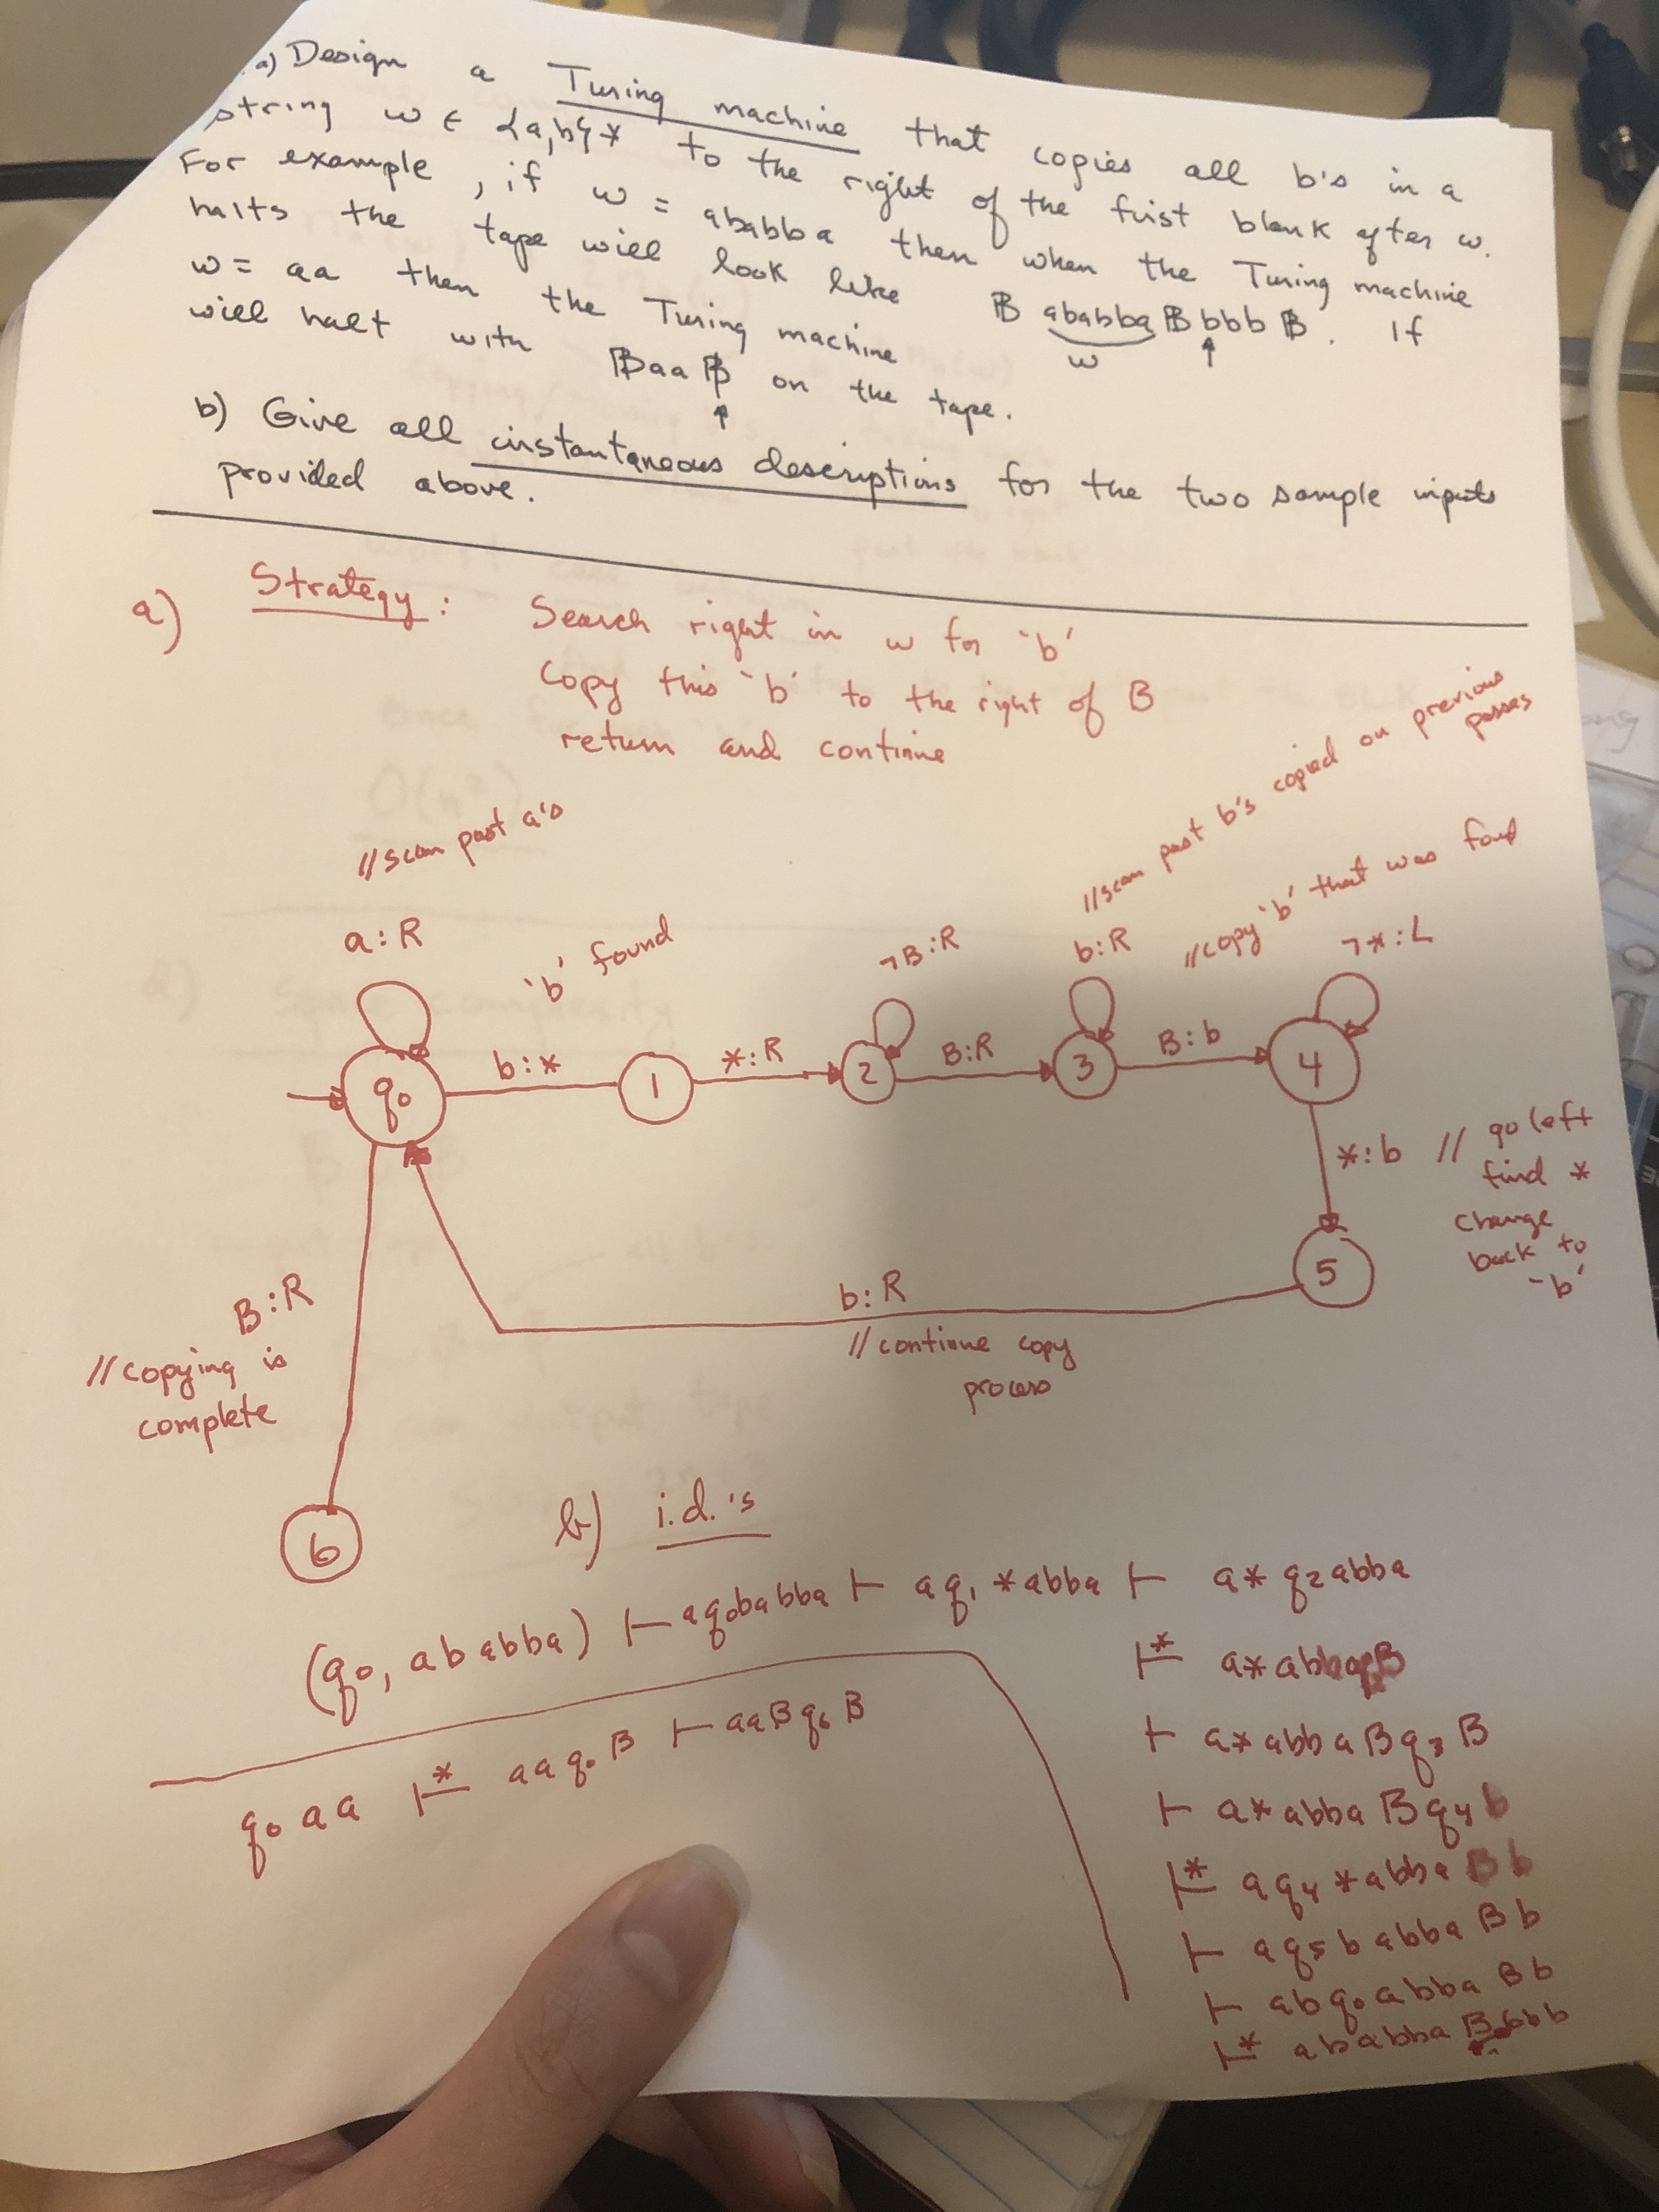 a) Design a Turing machine that copies all b's in a
string w ∈ {a,b}* to the right of the first blank after w.
For example, if w = ababba then when the Turing machine
halts the tape will look like B ababba B bbb B. If
w
w = aa then the Turing machine
will halt with B aa B on the tape.
b) Give all instantaneous descriptions for the two sample inputs
provided above.
a) Strategy: Search right in w for 'b'
Copy this 'b' to the right of B
return and continue
//scan past a's
//scan past b's copied on previous
passes
//copy 'b' that was found
a:R
'b' found
¬B:R
b:R
¬*:L
q0
b:*
1
*:R
2
B:R
3
B:b
4
*:b // go left
find *
change
back to
'b'
5
b:R
// continue copy
process
B:R
//copying is
complete
6
b) i.d.'s
(q0, ababba) ⊢ aq0babba ⊢ aq1*abba ⊢ a*q2abba
⊢* a*abbaq2B
⊢ a*abbaBq3B
⊢ a*abbaBq4b
⊢* aq4*abbaBb
⊢ aq5babbaBb
⊢ abq0abbaBb
⊢* ababbaBbbb
q0aa ⊢* aaq0B ⊢ aaBq6B